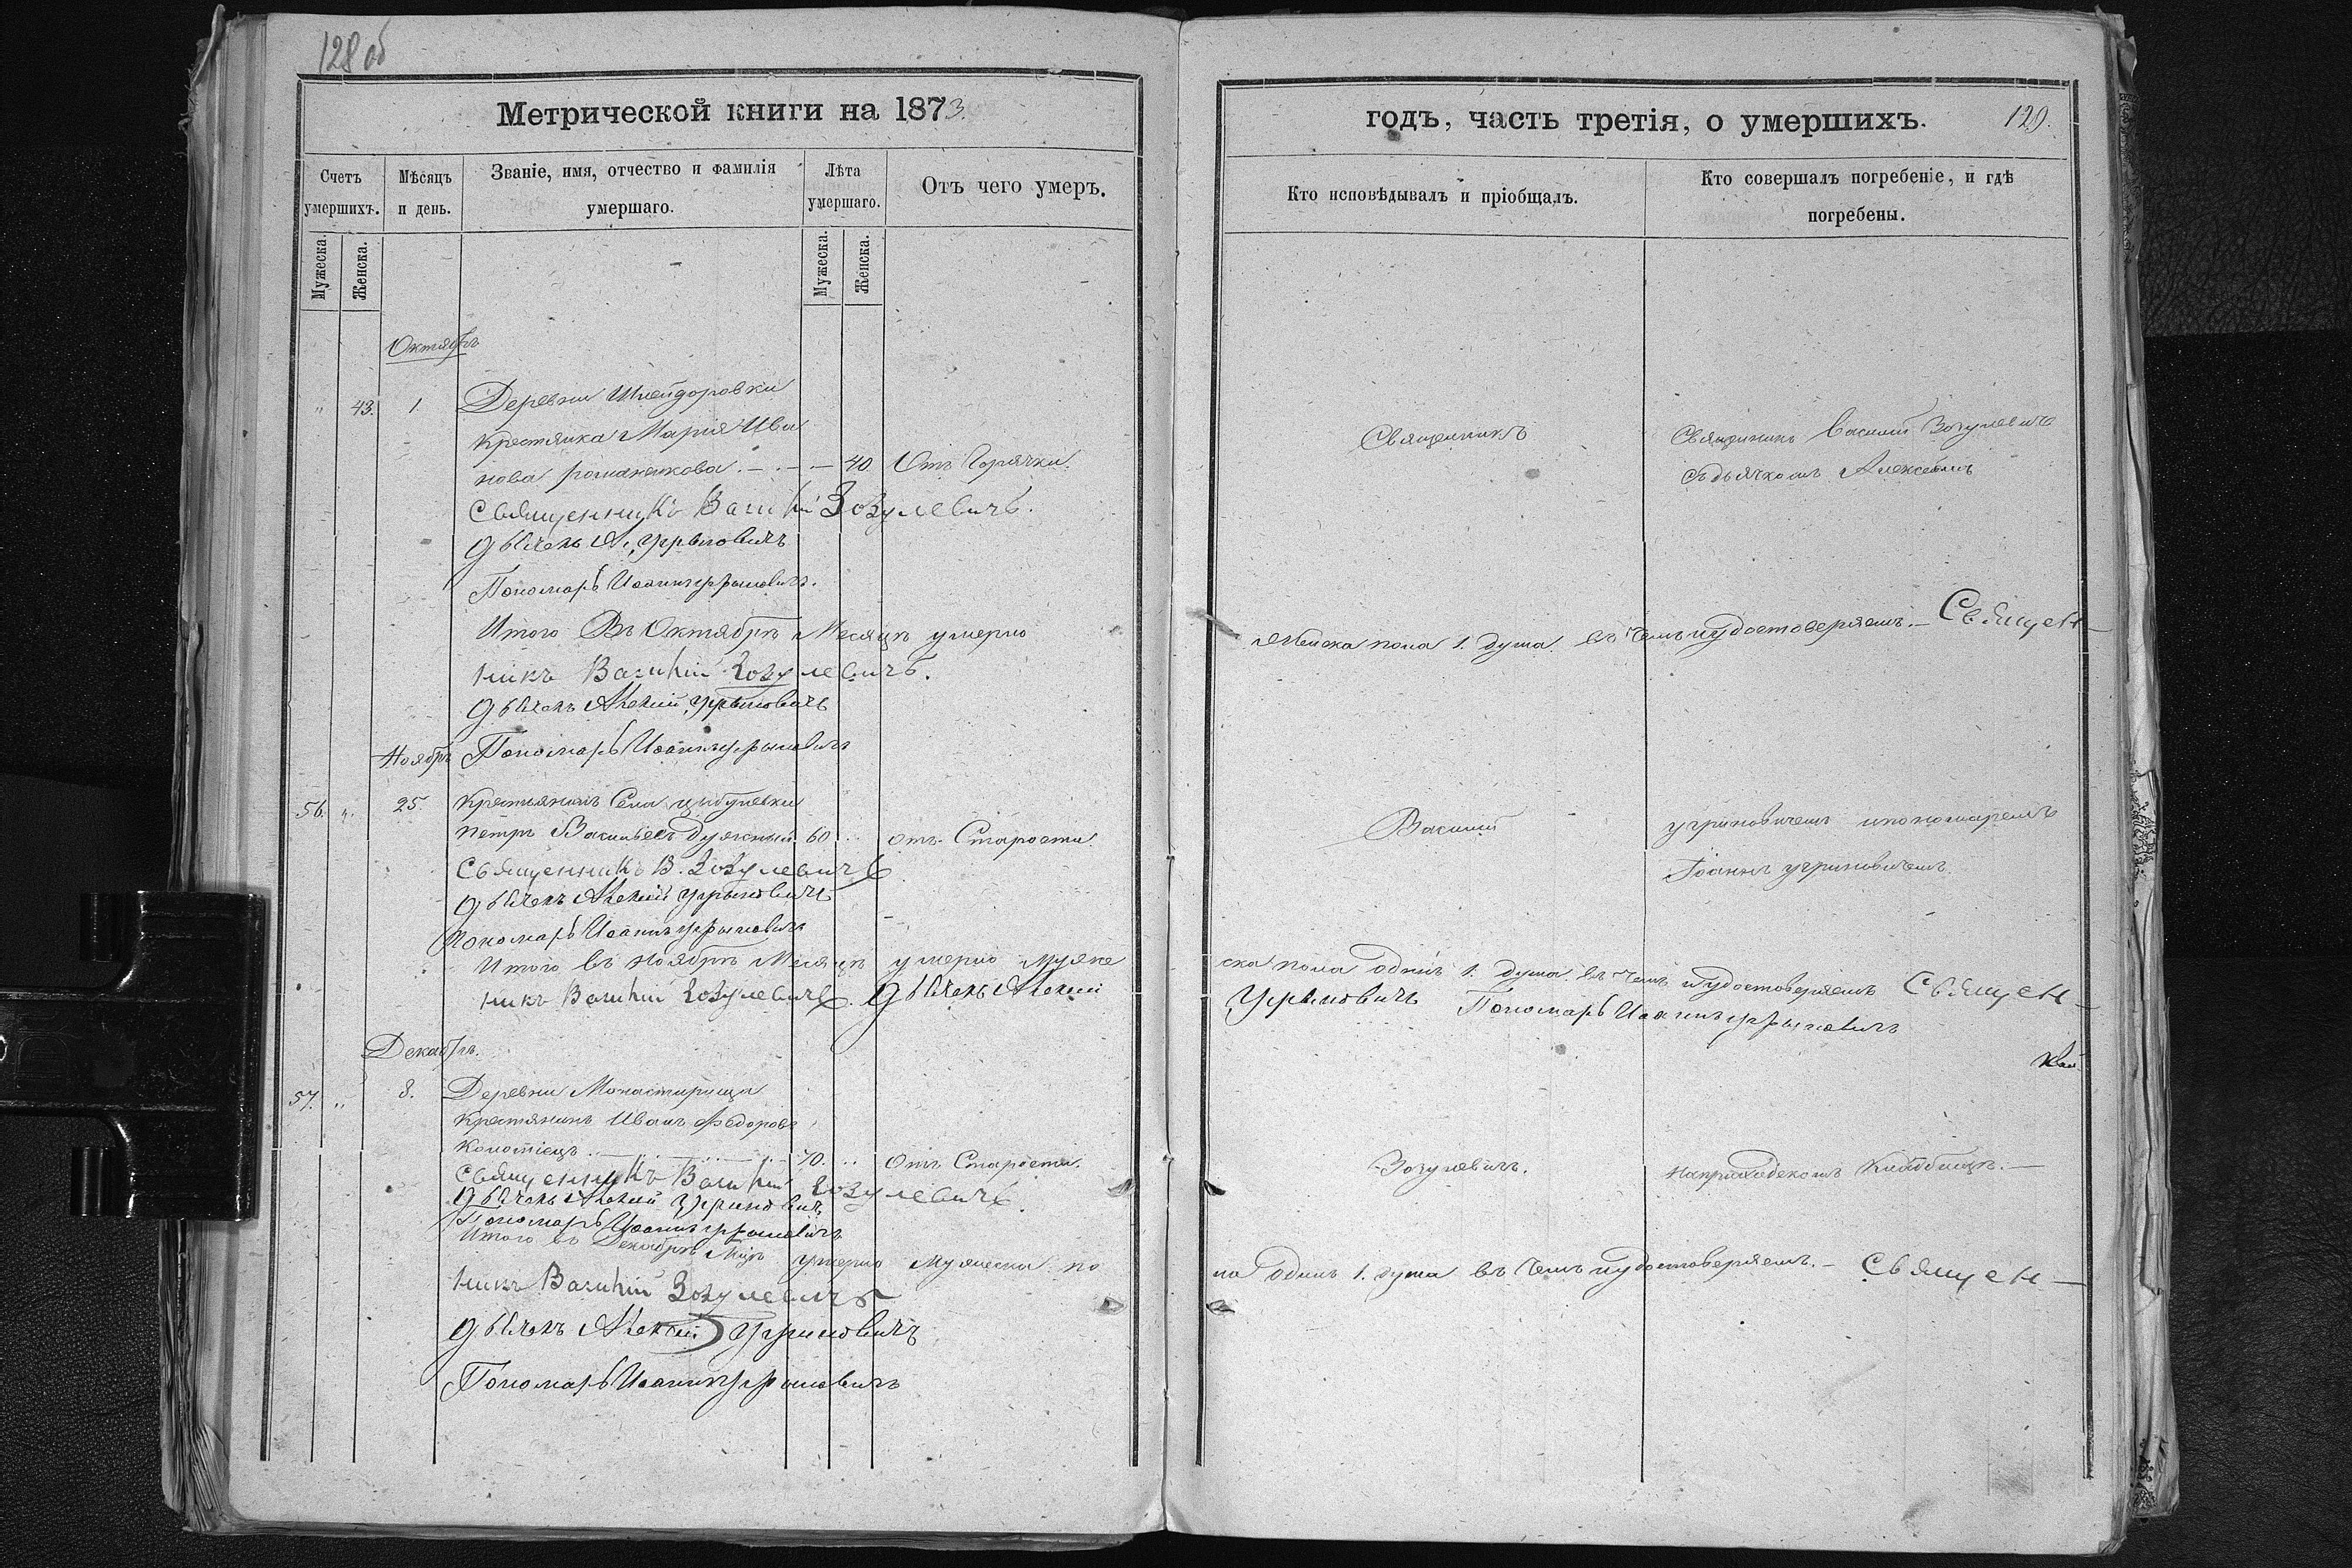 128 об
Метрической книги на 1873.
Счетъ умершихъ.
Мѣсяцъ и день.
Званіе, имя, отчество и фамилія умершаго.
Лѣта умершаго.
Отъ чего умеръ.
Мужеска.
Женска.
Мужеска.
Женска.
Октябрь
" 43. 1. Деревни
крестянка Марія Ива
нова романенкова. — 40 Отъ Горячки.
Священникъ Василій Зозулевичъ.
Дьячекъ А. Угриновичъ
Пономарь Иоаннъ Угриновичъ.
Итого Въ Октябрѣ Месяцѣ умерло
никъ Василій Зозулевичъ.
Дьячекъ Алексій Угриновичъ
Ноябрь Пономарь Иоаннъ Угриновичъ
56. " 25. Крестьянинъ Села Цыбулевки
Петръ Васильевъ 60 " отъ Старости.
Священникъ В. Зозулевичъ
Дьячекъ Алексій Угриновичъ
Пономарь Иоаннъ Угриновичъ
Итого въ Ноябрѣ Месяцѣ умерло муже
никъ Василій Зозулевичъ. Дьячекъ Алексій
Декабрь.
57. " 8. Деревни Монастирища
Крестянинъ Иванъ Федоровъ
Колотіецъ 70. " Отъ Старости.
Священникъ Василій Зозулевичъ
Дьячекъ Алексій Угриновичъ
Пономарь Иоаннъ Угриновичъ
Итого въ Декабрѣ Мцѣ умерло мужеска по
никъ Василій Зозулевичъ
Дьячекъ Алексій Угриновичъ
Пономарь Иоаннъ Угриновичъ
годъ, часть третія, о умершихъ. 129.
Кто исповѣдывалъ и пріобщалъ.
Кто совершалъ погребеніе, и гдѣ погребены.
Священникъ
Священникъ Василій Зозулевичъ
съ дьячкомъ Алексѣемъ
женска пола 1. душа въ чемъ и удостоверяемъ. — Священ—
Василий
угриновичемъ и пономаремъ
Іоанъ угриновичемъ
ска пола одинъ 1. душа въ чемъ и удостоверяемъ Священ—
Угриновичъ Пономарь Иоаннъ Угриновичъ
Зозулевичъ.
на приходскомъ кладбищѣ. —
ла одинъ 1. душа въ чемъ и удостоверяемъ. — Священ—